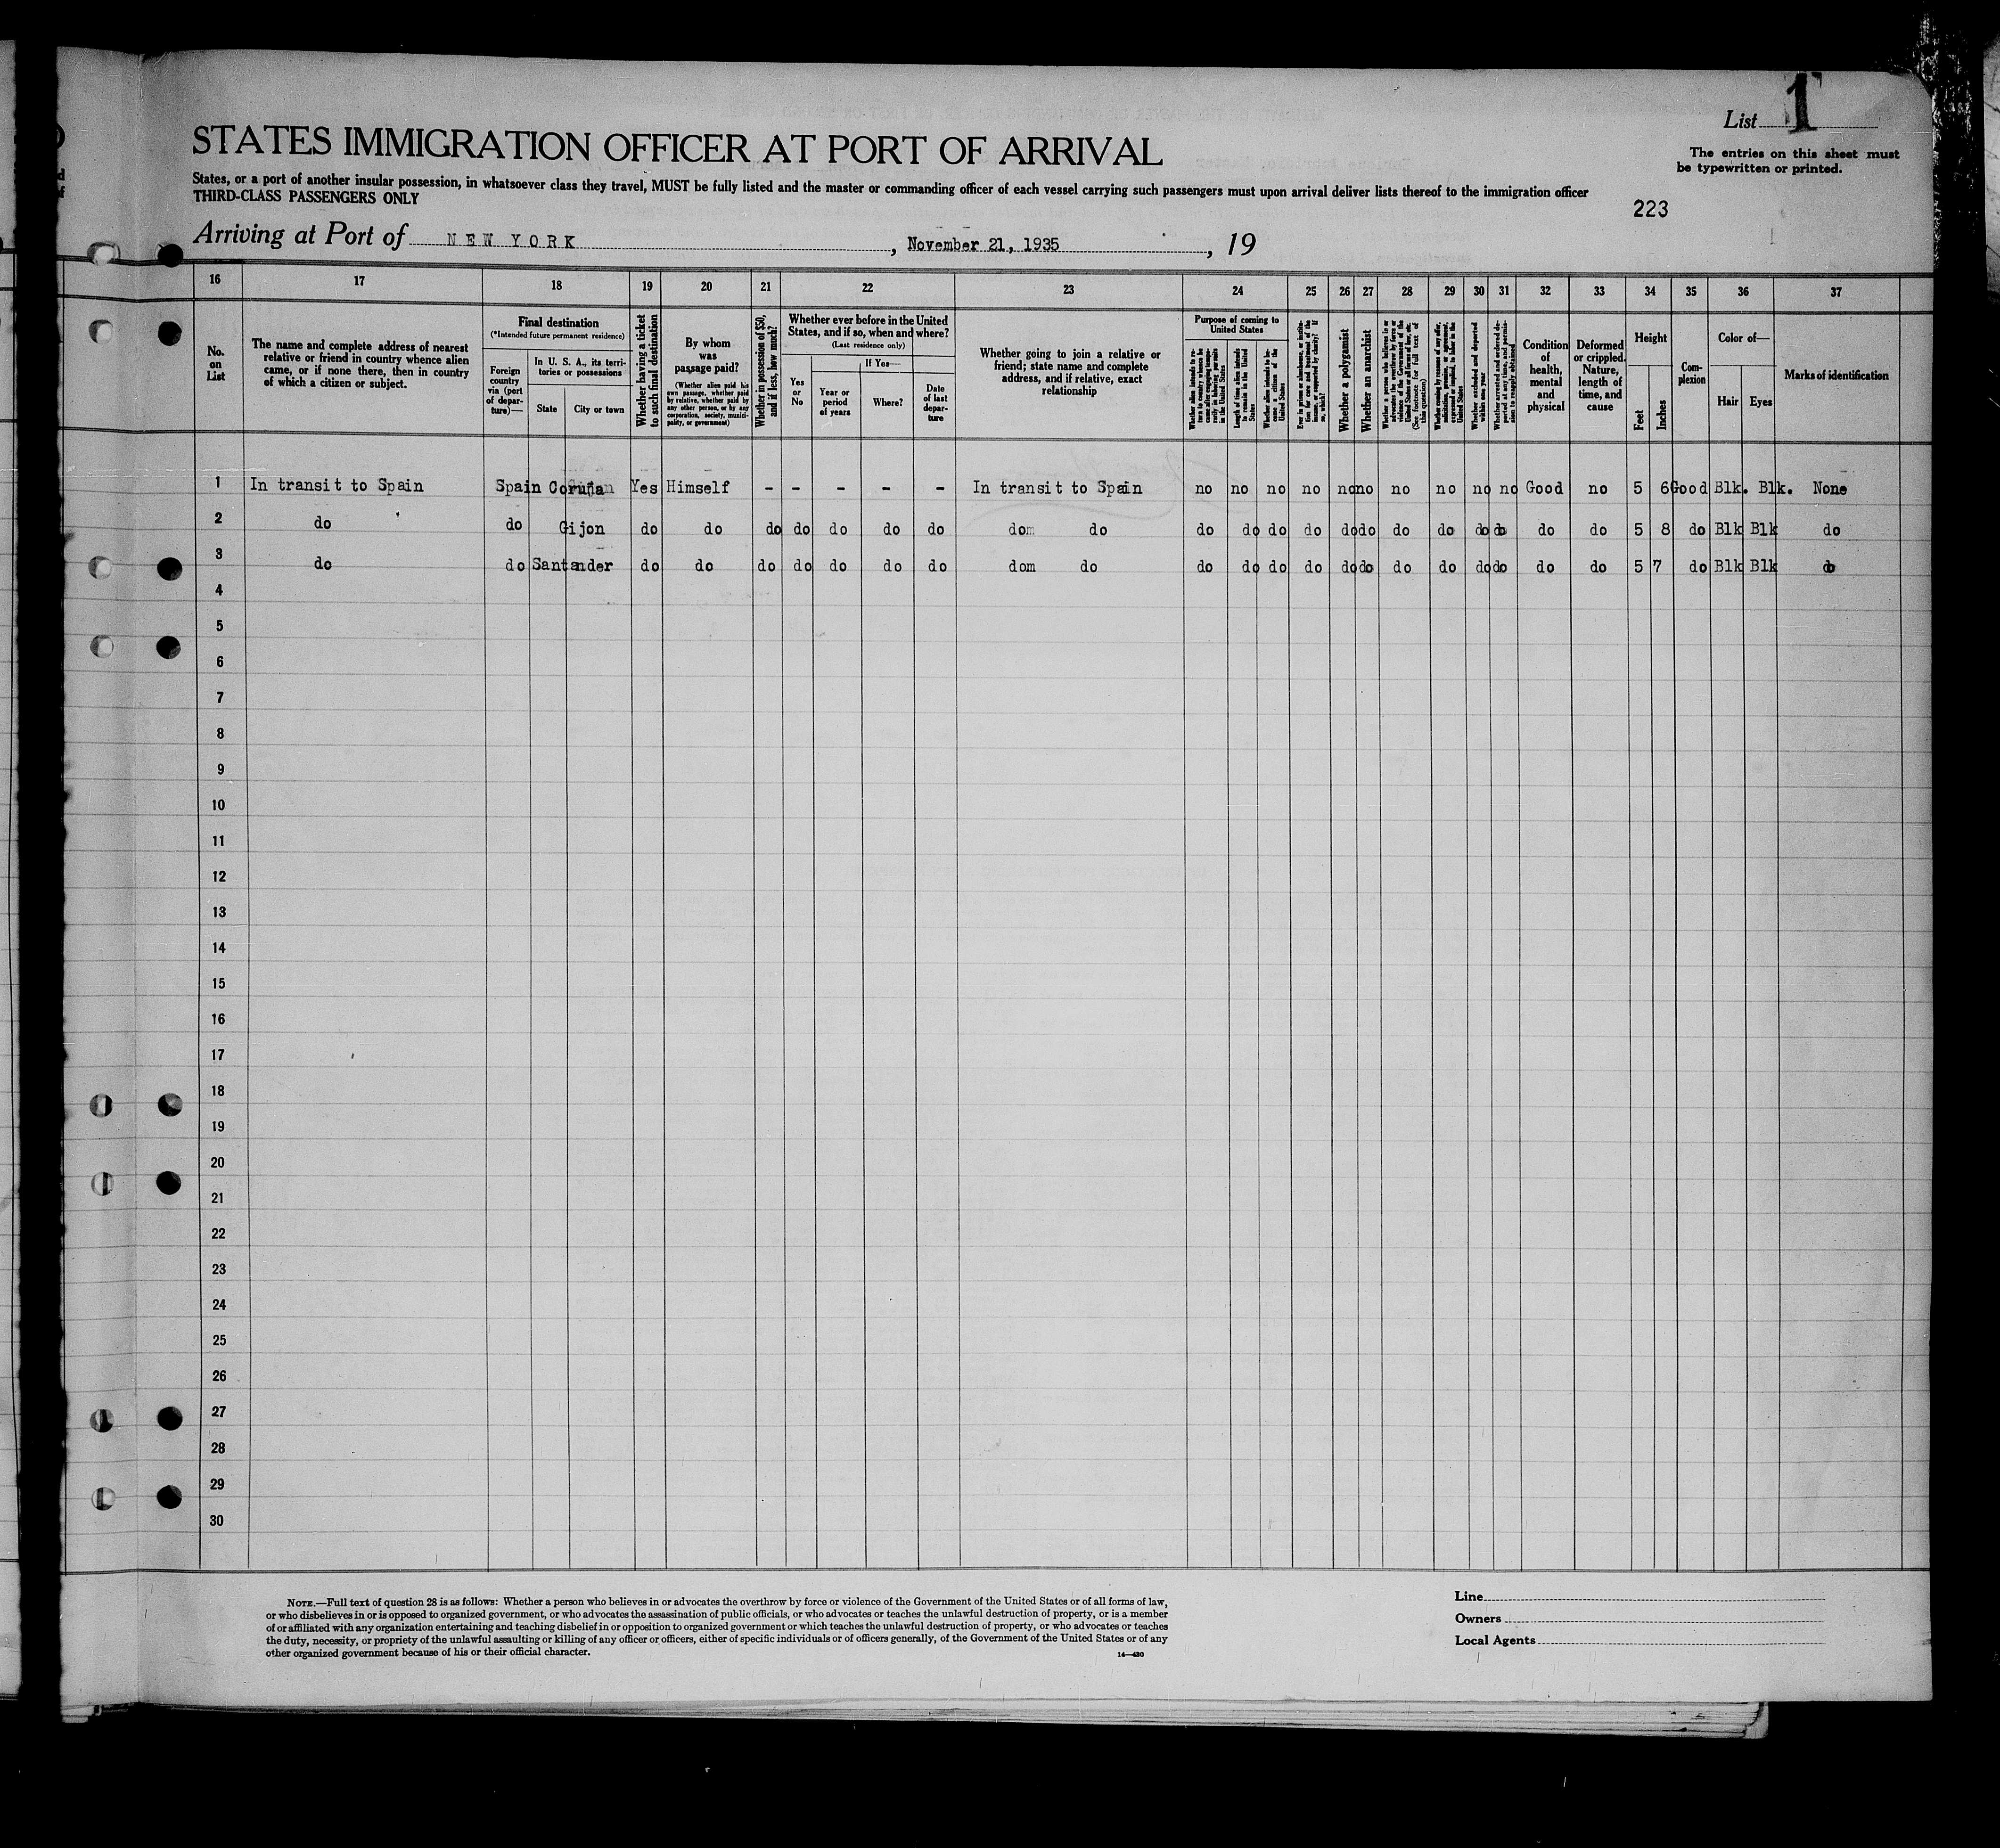 List 1
STATES IMMIGRATION OFFICER AT PORT OF ARRIVAL
The entries on this sheet must
be typewritten or printed.
States, or a port of another insular possession, in whatsoever class they travel, MUST be fully listed and the master or commanding officer of each vessel carrying such passengers must upon arrival deliver lists thereof to the immigration officer
THIRD-CLASS PASSENGERS ONLY
223
Arriving at Port of NEW YORK, November 21, 1935, 19
16 17 18 19 20 21 22 23 24 25 26 27 28 29 30 31 32 33 34 35 36 37
No. on List
The name and complete address of nearest relative or friend in country whence alien came, or if none there, then in country of which a citizen or subject.
Final destination
(*Intended future permanent residence)
Foreign country via (port of departure)—
In U. S. A., its territories or possessions
State
City or town
Whether having a ticket to such final destination
By whom was passage paid?
(Whether alien paid his own passage, whether paid by relative, whether paid by any other person, or by any corporation, society, municipality, or government)
Whether in possession of $50, and if less, how much?
Whether ever before in the United States, and if so, when and where?
(Last residence only)
Yes or No
If Yes—
Year or period of years
Where?
Date of last departure
Whether going to join a relative or friend; state name and complete address, and if relative, exact relationship
Purpose of coming to United States
Whether alien intends to return to country whence he came after engaging temporarily in laboring pursuits in the United States
Length of time alien intends to remain in the United States
Whether alien intends to become a citizen of the United States
Ever in prison or almshouse, or institution for care and treatment of the insane, or supported by charity? If so, which?
Whether a polygamist
Whether an anarchist
Whether a person who believes in or advocates the overthrow by force or violence of the Government of the United States or all forms of law, etc. (See footnote for full text of this question)
Whether coming by reason of any offer, solicitation, promise, or agreement, expressed or implied, to labor in the United States
Whether excluded and deported within one year
Whether arrested and ordered deported at any time, and permission to reapply obtained
Condition of health, mental and physical
Deformed or crippled. Nature, length of time, and cause
Height
Feet
Inches
Complexion
Color of—
Hair
Eyes
Marks of identification
1 In transit to Spain Spain Coruña Yes Himself - - - - - In transit to Spain no no no no no no no no no no Good no 5 6 Good Blk. Blk. None
2 do do Gijon do do do do do do do dom do do do do do do do do do do do do do 5 8 do Blk Blk do
3 do do Santander do do do do do do do dom do do do do do do do do do do do do do 5 7 do Blk Blk do
4
5
6
7
8
9
10
11
12
13
14
15
16
17
18
19
20
21
22
23
24
25
26
27
28
29
30
NOTE.—Full text of question 28 is as follows: Whether a person who believes in or advocates the overthrow by force or violence of the Government of the United States or of all forms of law,
or who disbelieves in or is opposed to organized government, or who advocates the assassination of public officials, or who advocates or teaches the unlawful destruction of property, or is a member
of or affiliated with any organization entertaining and teaching disbelief in or opposition to organized government or which teaches the unlawful destruction of property, or who advocates or teaches
the duty, necessity, or propriety of the unlawful assaulting or killing of any officer or officers, either of specific individuals or of officers generally, of the Government of the United States or of any
other organized government because of his or their official character.
14—430
Line
Owners
Local Agents